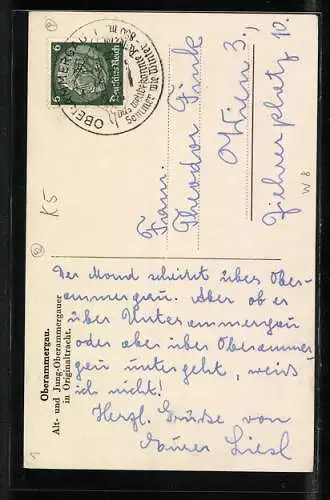 6 Deutsches Reich 6
OBERAMMERGAU
850 m.
Sommer wie Winter
Fam.
Theodor Fink
Wien 3.,
Ziehrerplatz 10.
K5
W 8
Oberammergau.
Alt- und Jung-Oberammergauer
in Originaltracht.
Der Mond scheint über Ober-
ammergau. Aber ob er
über Unterammergau
oder aber über Oberammer-
gau untergeht, weiß
ich nicht!
Herzl. Grüße von
Eurer Liesl